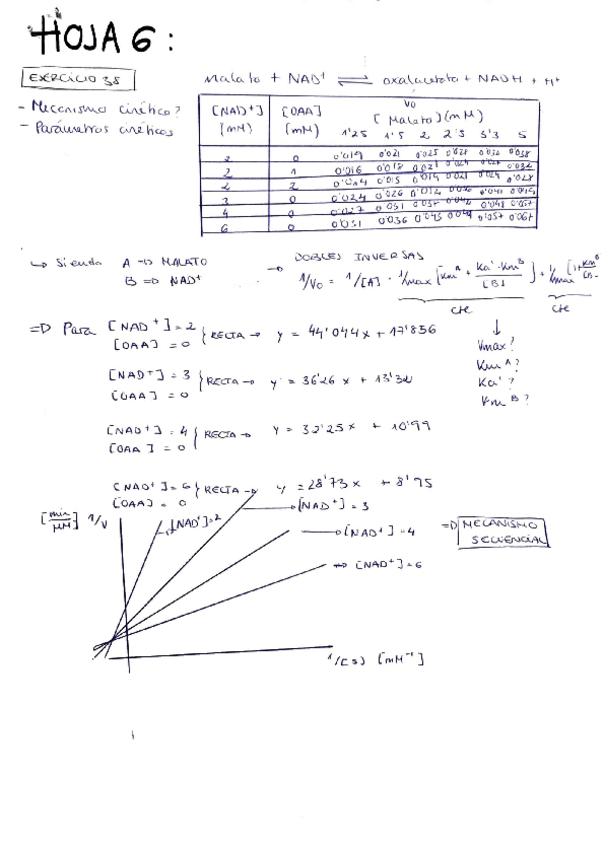 HOJA 6:
EXERCICIO 38
Malato + NAD⁺ ⇌ oxalacetato + NADH + H⁺
- Mecanismo cinético?
- Parámetros cinéticos
[NAD⁺] (mM) [OAA] (mM) V0 [Malato](mM)
1'25 1'5 2 2'5 3'3 5
2 0 0'019 0'021 0'025 0'028 0'038
2 1 0'016 0'018 0'021
2 2 0'014 0'015 0'019 0'021 0'024 0'028
3 0 0'024 0'026
4 0 0'027 0'031
6 0 0'031 0'036 0'043 0'057 0'067
↳ Siendo A → MALATO
B ⇒ NAD⁺
→ DOBLES INVERSAS
1/V0 = 1/[A] · 1/Vmax [KmA + Ka'·KmB / [B]] + 1/Vmax [1+ KmB/[B]
cte cte
⇒ Para [NAD⁺] = 2
[OAA] = 0 } RECTA → y = 44'044x + 17'856
Vmax?
KmA?
Ka'?
KmB?
[NAD⁺] = 3
[OAA] = 0 } RECTA → y = 36'26 x + 13'32
[NAD⁺] = 4
[OAA] = 0 } RECTA → y = 32'25 x + 10'99
[NAD⁺] = 6
[OAA] = 0 } RECTA → y = 28'73 x + 8'95
[min/mM] 1/V
→[NAD⁺]=2
→[NAD⁺] = 3
→[NAD⁺] = 4
⇒ MECANISMO SECUENCIAL
→ [NAD⁺] = 6
1/[S] [mM⁻¹]